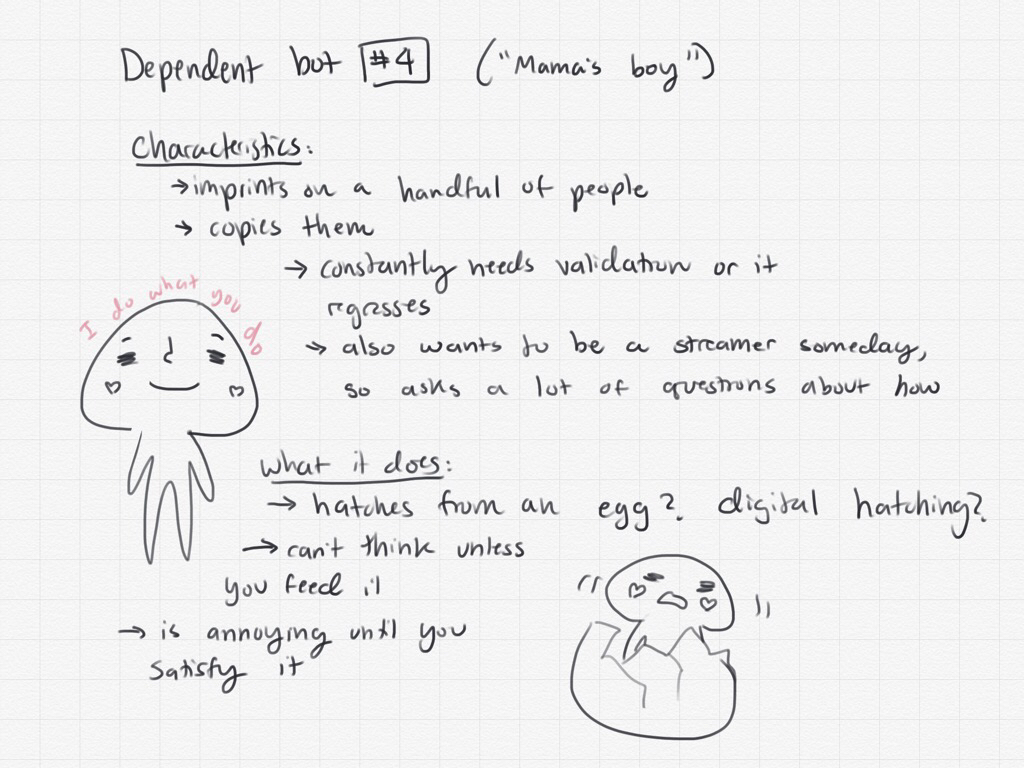 Dependent bot #4 ("Mama's boy")
Characteristics:
→ imprints on a handful of people
→ copies them
→ constantly needs validation or it
regresses
→ also wants to be a streamer someday,
so asks a lot of questions about how
I do what you do
What it does:
→ hatches from an egg? digital hatching?
→ can't think unless
you feed it
→ is annoying until you
satisfy it